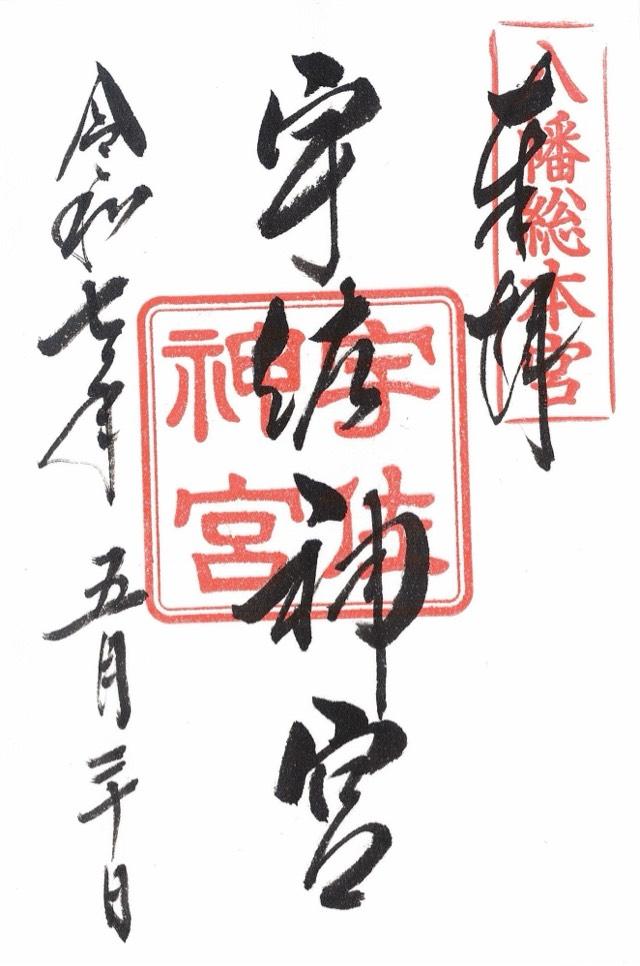 八幡総本宮
奉拝
宇佐神宮
宇佐神宮
令和七年 五月三十日